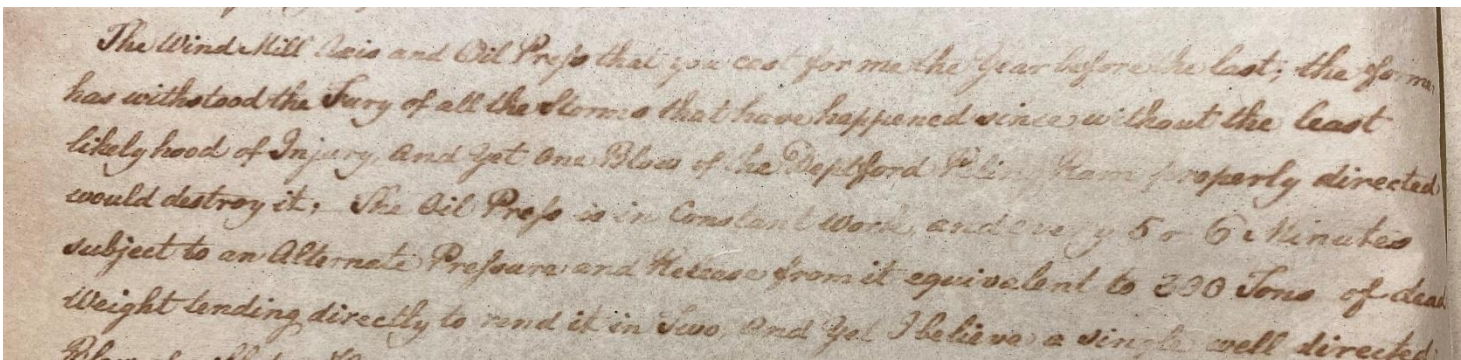 The Wind Mill Axis and Oil Press that you cast for me the Year before the last; the former
has withstood the Fury of all the Storms that have happened since without the least
likelyhood of Injury, and yet one Blow of the Deptford Ram properly directed
would destroy it; The Oil Press is in Constant Work, and every 5 or 6 Minutes
subject to an Alternate Pressure and Release from it equivalent to 300 Tons of dead
Weight tending directly to rend it in Two, and Yet I believe a single well directed
Blow of